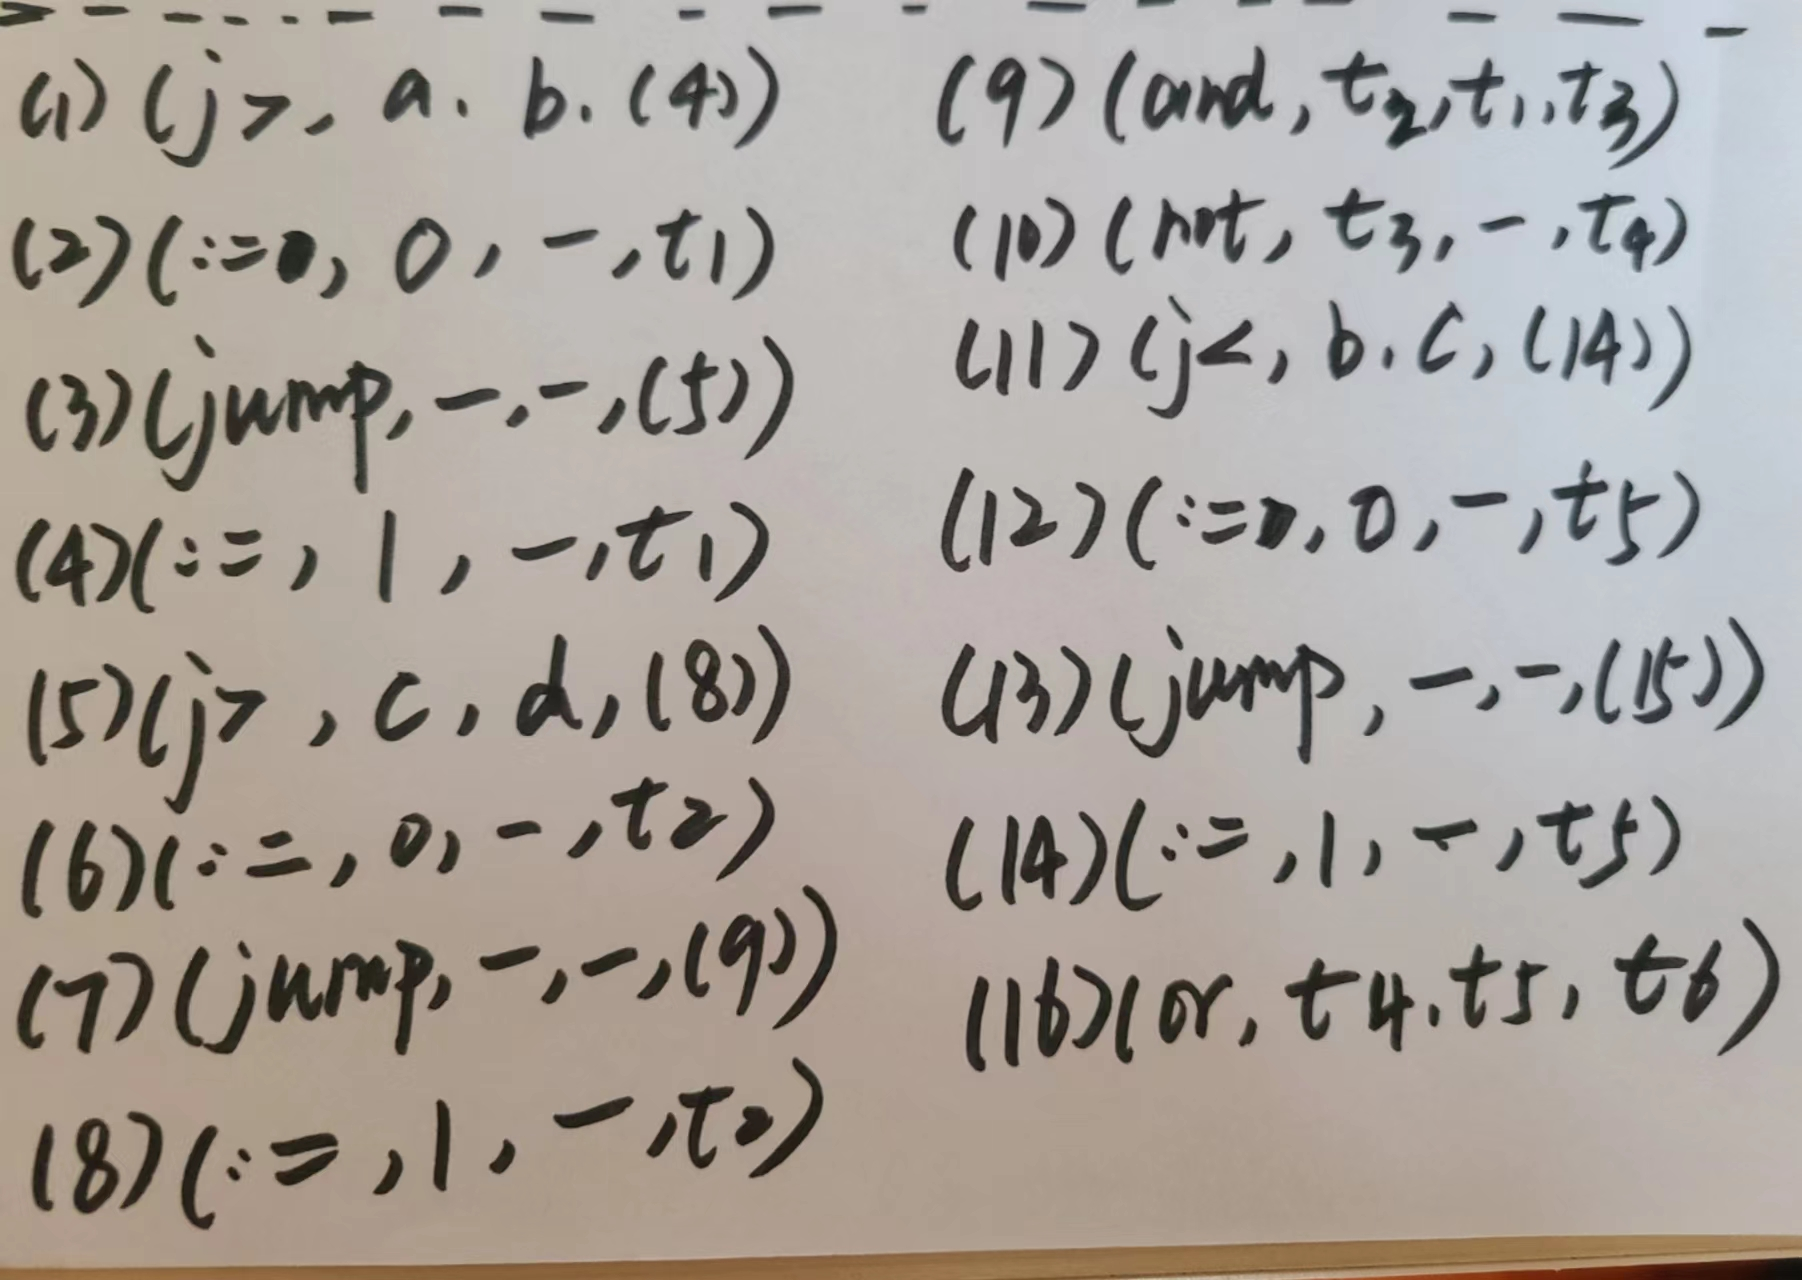 (1) (j>, a. b. (4))
(2) (:=, 0, -, t1)
(3) (jump, -, -, (5))
(4) (:=, 1, -, t1)
(5) (j>, c, d, (8))
(6) (:=, 0, -, t2)
(7) (jump, -, -, (9))
(8) (:=, 1, -, t2)
(9) (and, t2, t1, t3)
(10) (not, t3, -, t4)
(11) (j<, b. c, (14))
(12) (:=, 0, -, t5)
(13) (jump, -, -, (15))
(14) (:=, 1, -, t5)
(16) (or, t4. t5, t6)